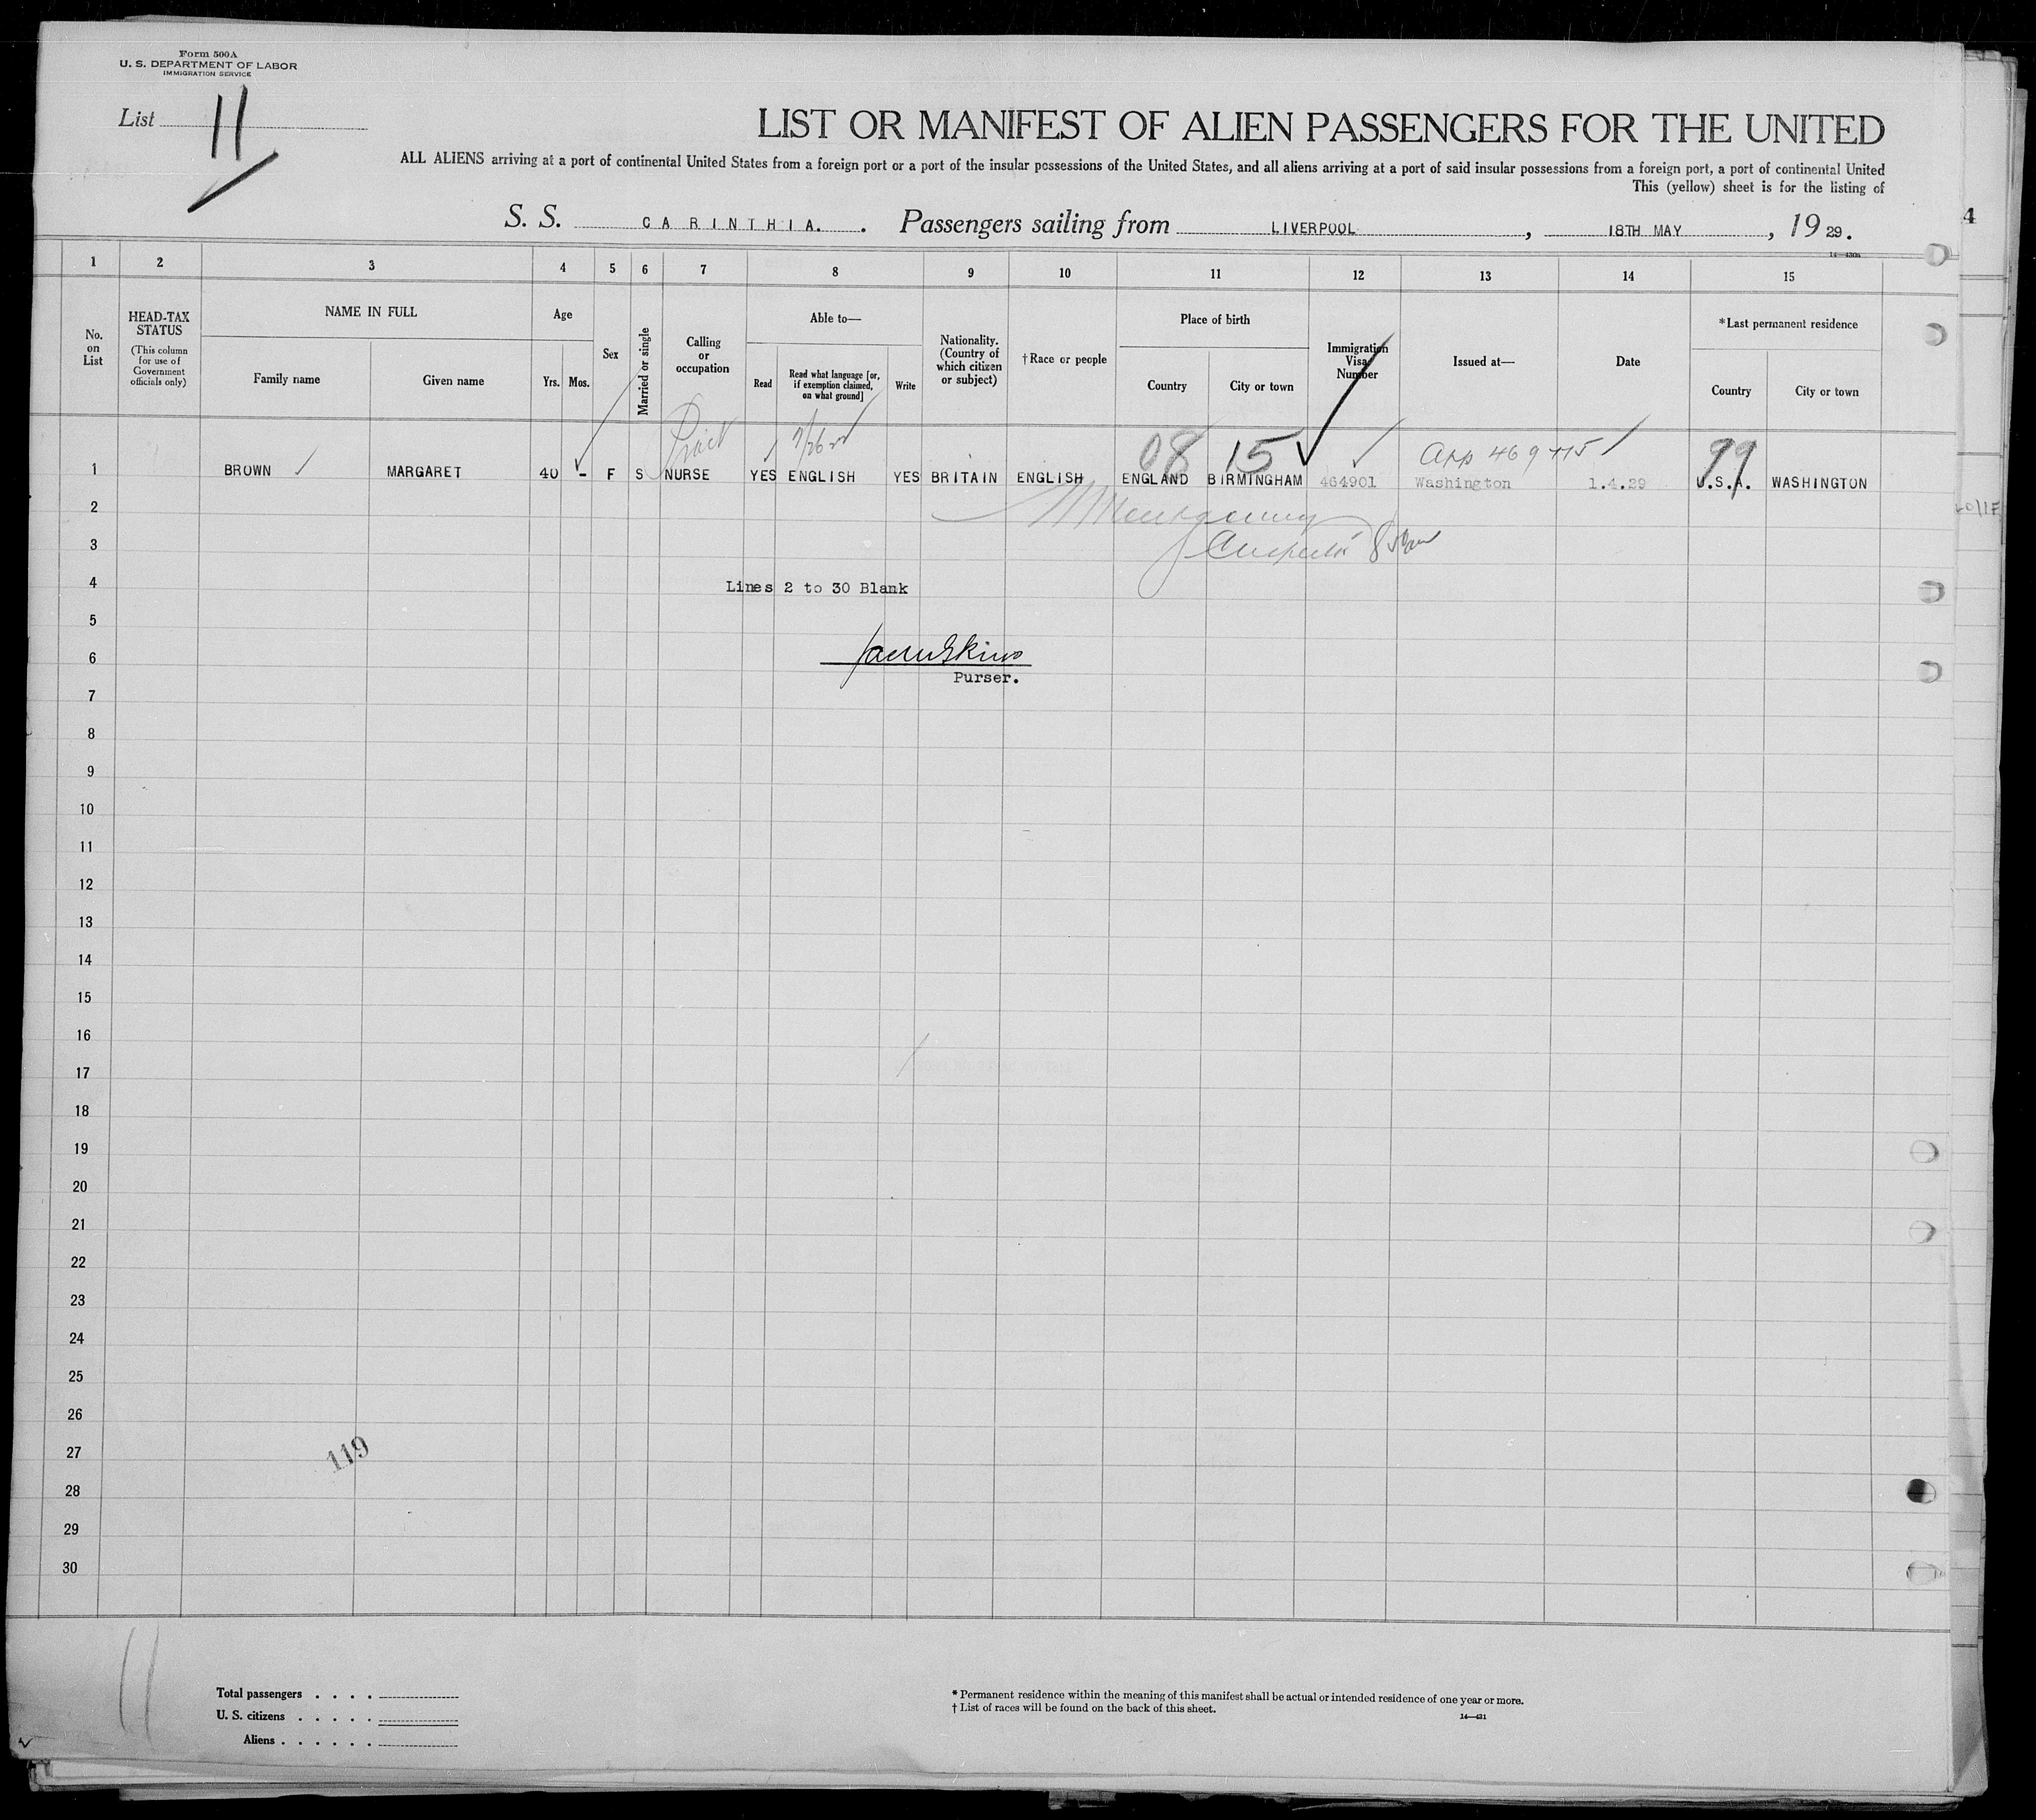 Form 500A
U. S. DEPARTMENT OF LABOR
IMMIGRATION SERVICE
List 11
LIST OR MANIFEST OF ALIEN PASSENGERS FOR THE UNITED
ALL ALIENS arriving at a port of continental United States from a foreign port or a port of the insular possessions of the United States, and all aliens arriving at a port of said insular possessions from a foreign port, a port of continental United
This (yellow) sheet is for the listing of
S. S. CARINTHIA. . Passengers sailing from LIVERPOOL , 18TH MAY , 19 29.
4
14—430a
1 2 3 4 5 6 7 8 9 10 11 12 13 14 15
No. on List
HEAD-TAX STATUS
(This column for use of Government officials only)
NAME IN FULL
Family name Given name
Age
Yrs. Mos.
Sex
Married or single
Calling or occupation
Able to—
Read
Read what language [or, if exemption claimed, on what ground]
Write
Nationality. (Country of which citizen or subject)
†Race or people
Place of birth
Country City or town
Immigration Visa Number
Issued at—
Date
*Last permanent residence
Country City or town
08 15 App 469 99
1 BROWN MARGARET 40 - F S NURSE YES ENGLISH YES BRITAIN ENGLISH ENGLAND BIRMINGHAM 464901 Washington 1.4.29 U.S.A. WASHINGTON
2 Montgomery
3 Inspector
4 Lines 2 to 30 Blank
5
6
Purser.
7
8
9
10
11
12
13
14
15
16
17
18
19
20
21
22
23
24
25
26
27
119
28
29
30
11
Total passengers . . . .
U. S. citizens . . . . .
Aliens . . . . . .
* Permanent residence within the meaning of this manifest shall be actual or intended residence of one year or more.
† List of races will be found on the back of this sheet.
14—431